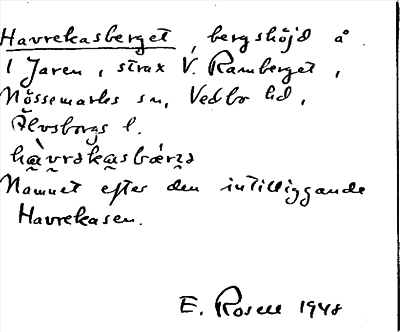 Havrekasberget, bergshöjd å
1 Jaren, strax V. Ramberget,
Nössemarks sn, Vedbo hd,
Älvsborgs l.
Namnet efter den intilliggande
Havrekasen.
E. Rosell 1948